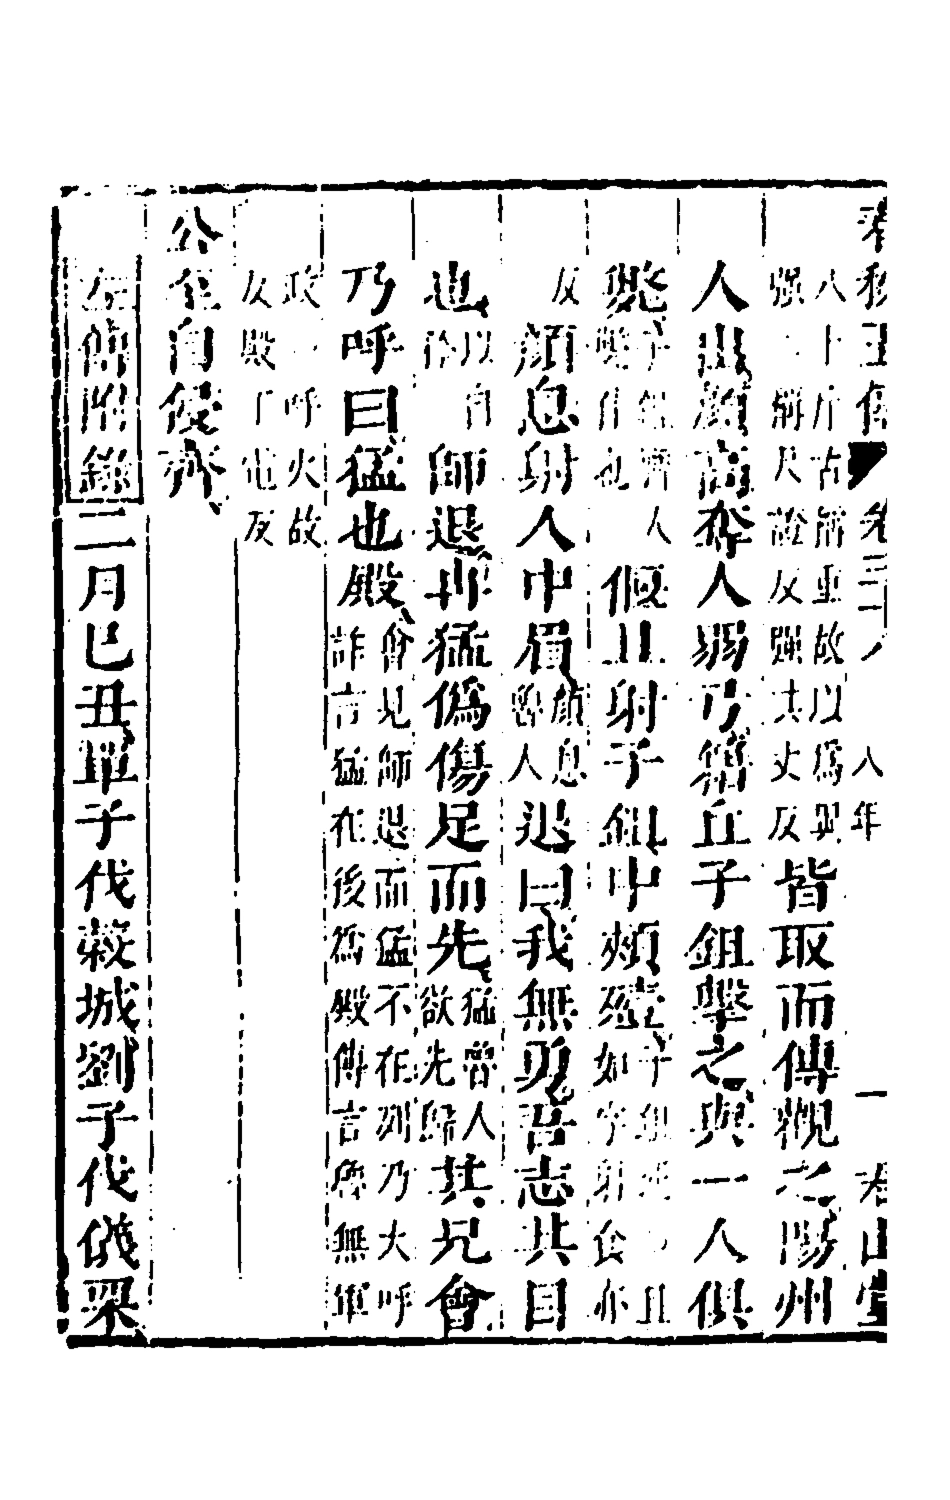 春秋正傳 卷三十 八年 一
八十斤古稱重故以爲異
強 稱尺證反強其丈反
皆取而傳觀之陽州
人出顔高奪人弱弓籍丘子鉏擊之與一人俱
斃
子鉏齊人
斃仆也
偃且射子鉏中頰殪
子鉏死○且
如字射食亦
反
顔息射人中眉
顔息
魯人
退曰我無勇吾志其目
也
以自
矜
師退冉猛僞傷足而先
猛魯人
欲先歸
其兄會
乃呼曰猛也殿
會見師退而猛不在列乃大呼
詐言猛在後爲殿傳言魯無軍
政○呼火故
反殿丁電反
公至自侵齊
左傳附錄二月己丑單子伐榖城劉子伐儀栗